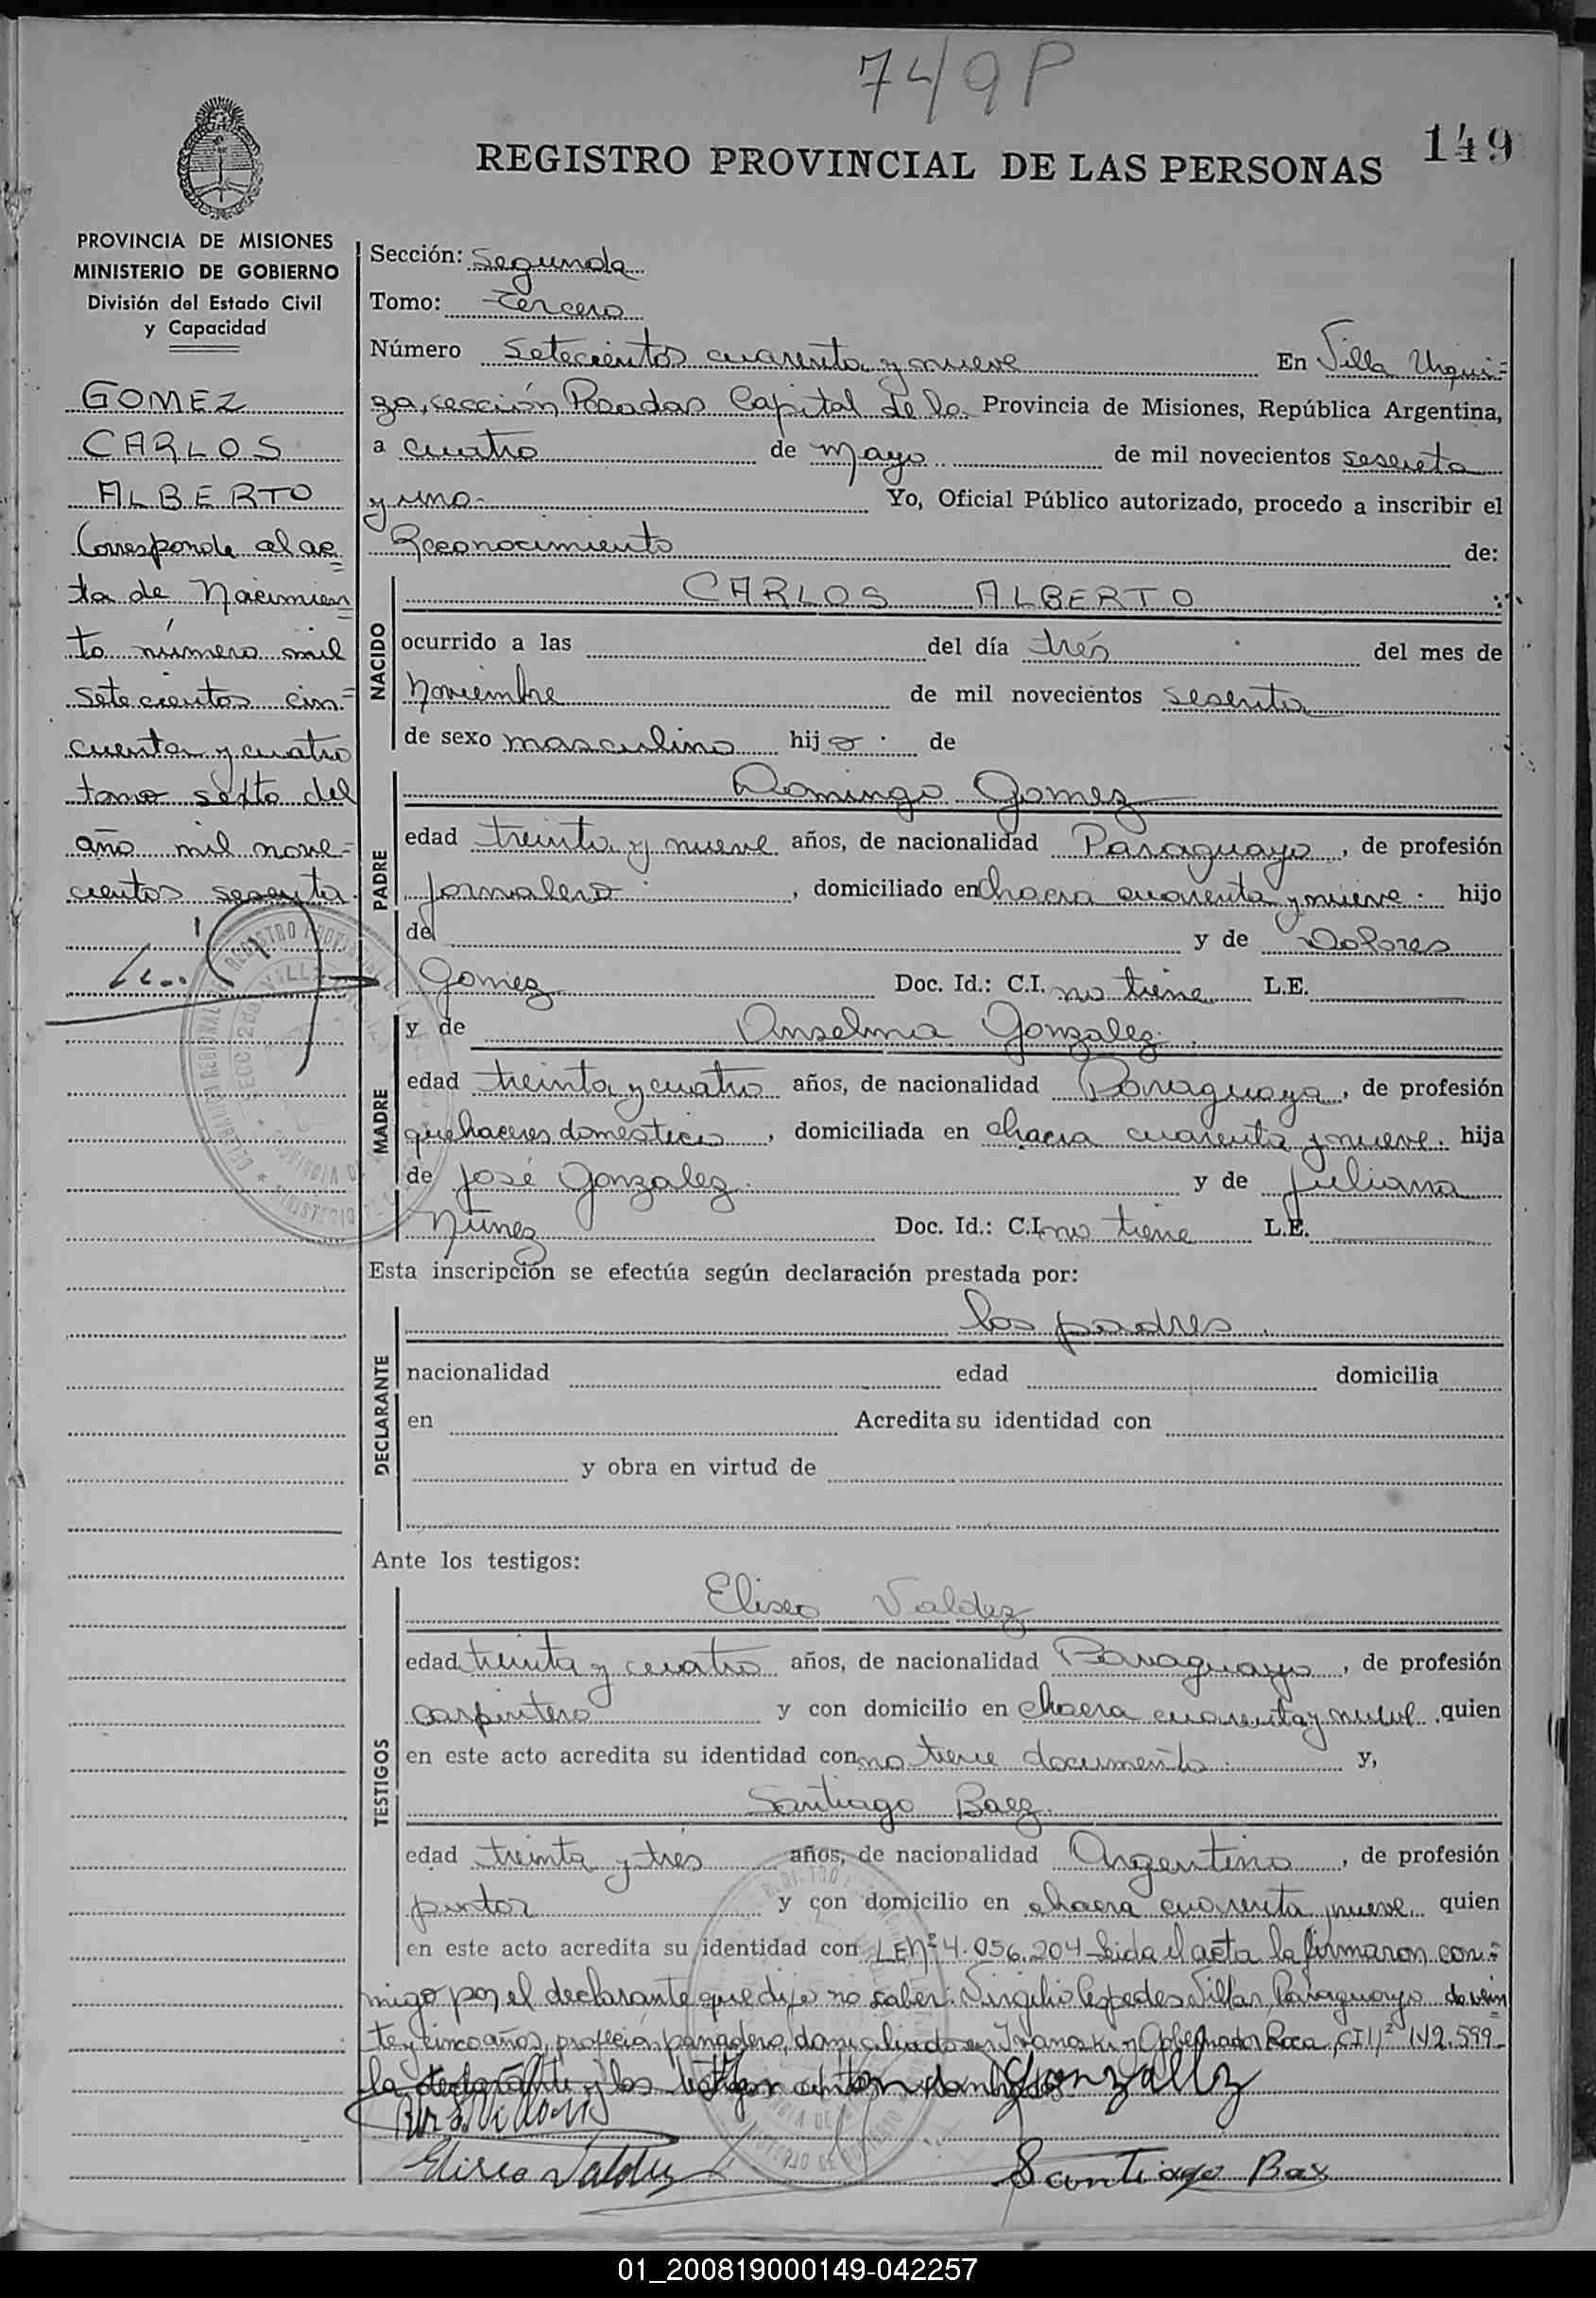 749P
149
REGISTRO PROVINCIAL DE LAS PERSONAS
PROVINCIA DE MISIONES
MINISTERIO DE GOBIERNO
División del Estado Civil
y Capacidad
GOMEZ
CARLOS
ALBERTO
Corresponde al ac=
ta de Nacimien
to número mil
setecientos cin=
cuenta y cuatro
tomo sexto del
año mil nove=
cientos sesenta.
Sección: Segunda
Tomo: Tercero
Número Setecientos cuarenta y nueve En Villa Urqui=
za, sección Posadas Capital de la Provincia de Misiones, República Argentina,
a cuatro de Mayo de mil novecientos sesenta
y uno.- Yo, Oficial Público autorizado, procedo a inscribir el
Reconocimiento de:
NACIDO
CARLOS ALBERTO
ocurrido a las del día trés del mes de
Noviembre de mil novecientos sesenta
de sexo masculino hijo de
PADRE
Domingo Gomez
edad treinta y nueve años, de nacionalidad Paraguayo, de profesión
Jornalero, domiciliado en chacra cuarenta y nueve. hijo
de y de Dolores
Gomez Doc. Id.: C.I. no tiene L.E.
MADRE
y de Anselma Gonzalez.
edad treinta y cuatro años, de nacionalidad Paraguaya, de profesión
quehaceres domesticos, domiciliada en chacra cuarenta y nueve. hija
de José Gonzalez. y de Juliana
Núnez Doc. Id.: C.I. no tiene L.E.
Esta inscripción se efectúa según declaración prestada por:
DECLARANTE
los padres.
nacionalidad edad domicilia
en Acredita su identidad con
y obra en virtud de
Ante los testigos:
TESTIGOS
Eliseo Valdez
edad treinta y cuatro años, de nacionalidad Paraguayo, de profesión
carpintero y con domicilio en chacra cuarenta y nueve. quien
en este acto acredita su identidad con no tiene documento. y,
Santiago Baez.
edad treinta y trés años, de nacionalidad Argentino, de profesión
pintor y con domicilio en chacra cuarenta y nueve. quien
en este acto acredita su identidad con LENº 4.056.204 - Leida el acta la firmaron con=
migo por el declarante que dijo no saber: Virgilio Cespedes Villar, Paraguayo de vein
te y cinco años, profeción panadero, domiciliado en y Gobernador Roca, CI Nº 142.599
la declarante y los testigos Gonzallz
Eliseo Valdez
Santiago Baez
01_200819000149-042257